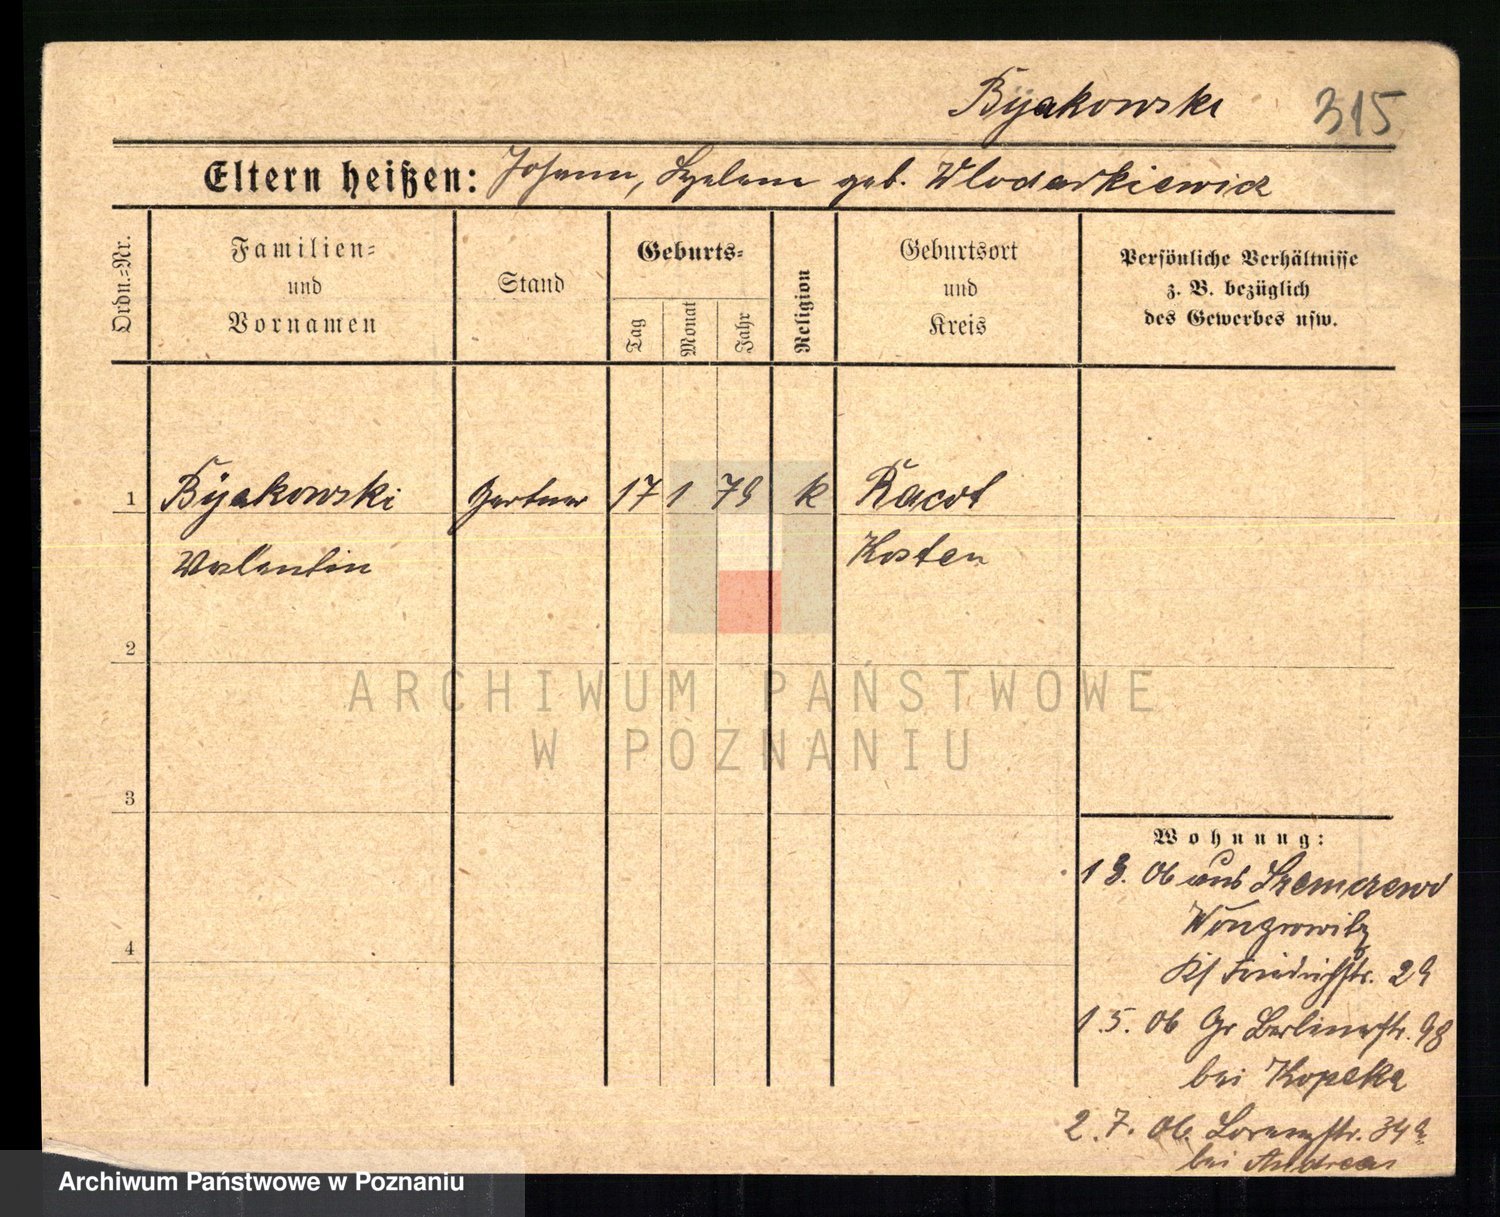 Byakowski 315
Eltern heißen: Johann, Helene geb. Wlodarkiewicz
Ordn.-Nr.
Familien-
und
Vornamen
Stand
Geburts-
Tag
Monat
Jahr
Religion
Geburtsort
und
Kreis
Persönliche Verhältnisse
z. B. bezüglich
des Gewerbes usw.
1 Byakowski Gärtner 17 1 79 k Racot
Valentin Kosten
2
3
4
Wohnung:
1 3. 06 aus
Wongrowitz
Friedrichstr. 29
1. 5. 06 Gr Berlinerstr. 98
bei Kopeka
2. 7. 06. Lorenzstr. 34a
bei Andreas
ARCHIWUM PAŃSTWOWE
W POZNANIU
Archiwum Państwowe w Poznaniu